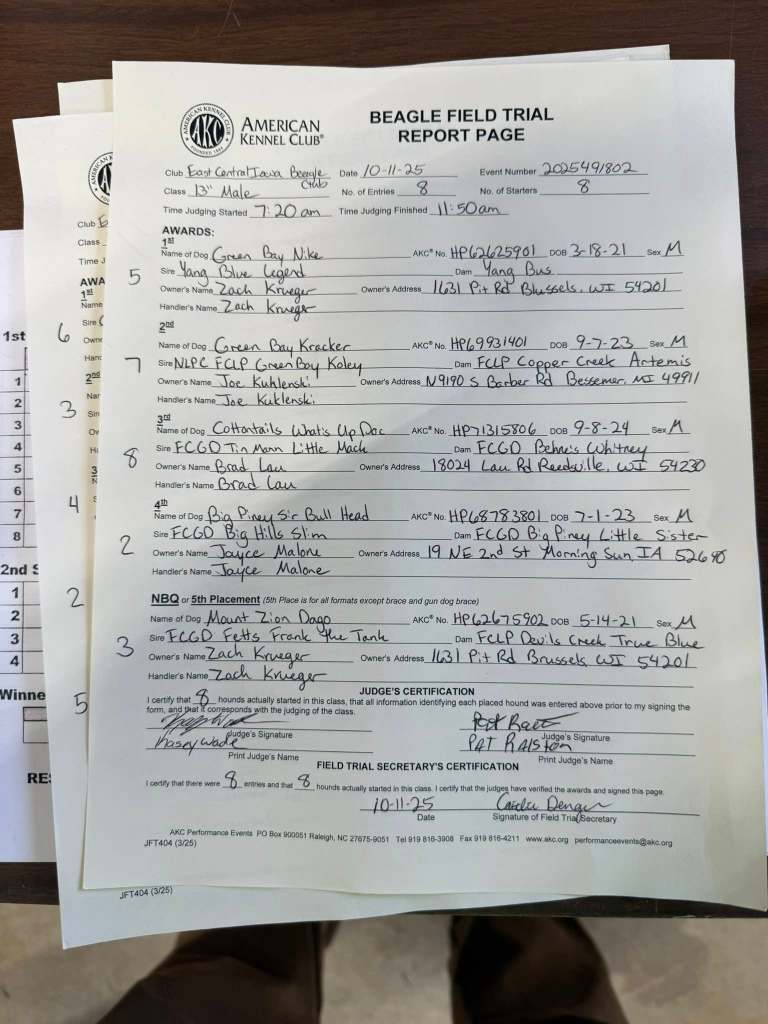 AMERICAN KENNEL CLUB®
BEAGLE FIELD TRIAL
REPORT PAGE
Club East Central Iowa Beagle Club Date 10-11-25 Event Number 2025491802
Class 13" Male No. of Entries 8 No. of Starters 8
Time Judging Started 7:20 am Time Judging Finished 11:50am
AWARDS:
1st
Name of Dog Green Bay Nike AKC® No. HP62625901 DOB 3-18-21 Sex M
5 Sire Yang Blue Legend Dam Yang Bus
Owner's Name Zach Krueger Owner's Address 1631 Pit Rd Blussels, WI 54201
Handler's Name Zach Krueger
2nd
Name of Dog Green Bay Kracker AKC® No. HP69931401 DOB 9-7-23 Sex M
7 Sire NLPC FCLP Green Bay Koley Dam FCLP Copper Creek Artemis
Owner's Name Joe Kuklenski Owner's Address N9190 S Barber Rd Bessemer, MI 49911
Handler's Name Joe Kuklenski
3rd
Name of Dog Cottontails What's Up Doc AKC® No. HP71315806 DOB 9-8-24 Sex M
8 Sire FCGD Tin Mann Little Mack Dam FCGD Behne's Whitney
Owner's Name Brad Lau Owner's Address 18024 Lau Rd Reedsville, WI 54230
Handler's Name Brad Lau
4th
Name of Dog Big Piney Sir Bull Head AKC® No. HP68783801 DOB 7-1-23 Sex M
2 Sire FCGD Big Hills Slim Dam FCGD Big Piney Little Sister
Owner's Name Jayce Malone Owner's Address 19 NE 2nd St Morning Sun, IA 52640
Handler's Name Jayce Malone
NBQ or 5th Placement (5th Place is for all formats except brace and gun dog brace)
Name of Dog Mount Zion Dago AKC® No. HP62675902 DOB 5-14-21 Sex M
3 Sire FCGD Fetts Frank the Tank Dam FCLP Devils Creek True Blue
Owner's Name Zach Krueger Owner's Address 1631 Pit Rd Brussels WI 54201
Handler's Name Zach Krueger
JUDGE'S CERTIFICATION
I certify that 8 hounds actually started in this class, that all information identifying each placed hound was entered above prior to my signing the
form, and that it corresponds with the judging of the class.
Judge's Signature Judge's Signature
Kasey Wade PAT RALSTON
Print Judge's Name Print Judge's Name
FIELD TRIAL SECRETARY'S CERTIFICATION
I certify that there were 8 entries and that 8 hounds actually started in this class. I certify that the judges have verified the awards and signed this page.
10-11-25
Date Signature of Field Trial Secretary
AKC Performance Events PO Box 900051 Raleigh, NC 27675-9051 Tel 919 816-3908 Fax 919 816-4211 www.akc.org performanceevents@akc.org
JFT404 (3/25)
JFT404 (3/25)
Club
Class
Time J
AWA
1st
Name
6 Sire
Owne
Hand
2nd
3
4
3
2
5
1st
1
2
3
4
5
6
7
8
2nd S
1
2
3
4
Winne
RES